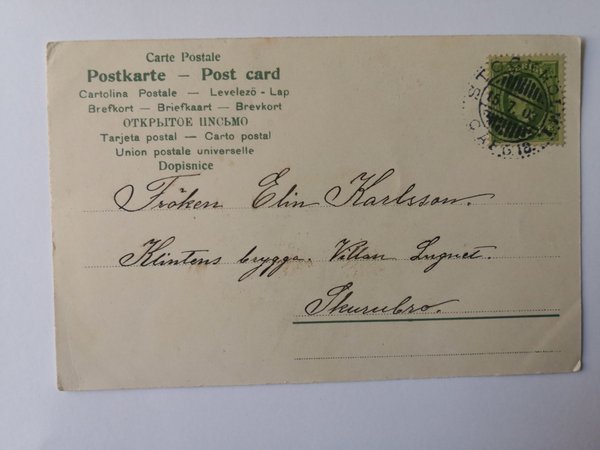 Carte Postale
Postkarte — Post card
Cartolina Postale — Levelező - Lap
Brefkort — Briefkaart — Brevkort
ОТКРЫТОЕ ПИСЬМО
Tarjeta postal — Carto postal
Union postale universelle
Dopisnice
STOCKHOLM
15.7.03
AFG.18
Fröken Elin Karlsson.
Klintens brygga. Villan Lugnet.
Skurubro.